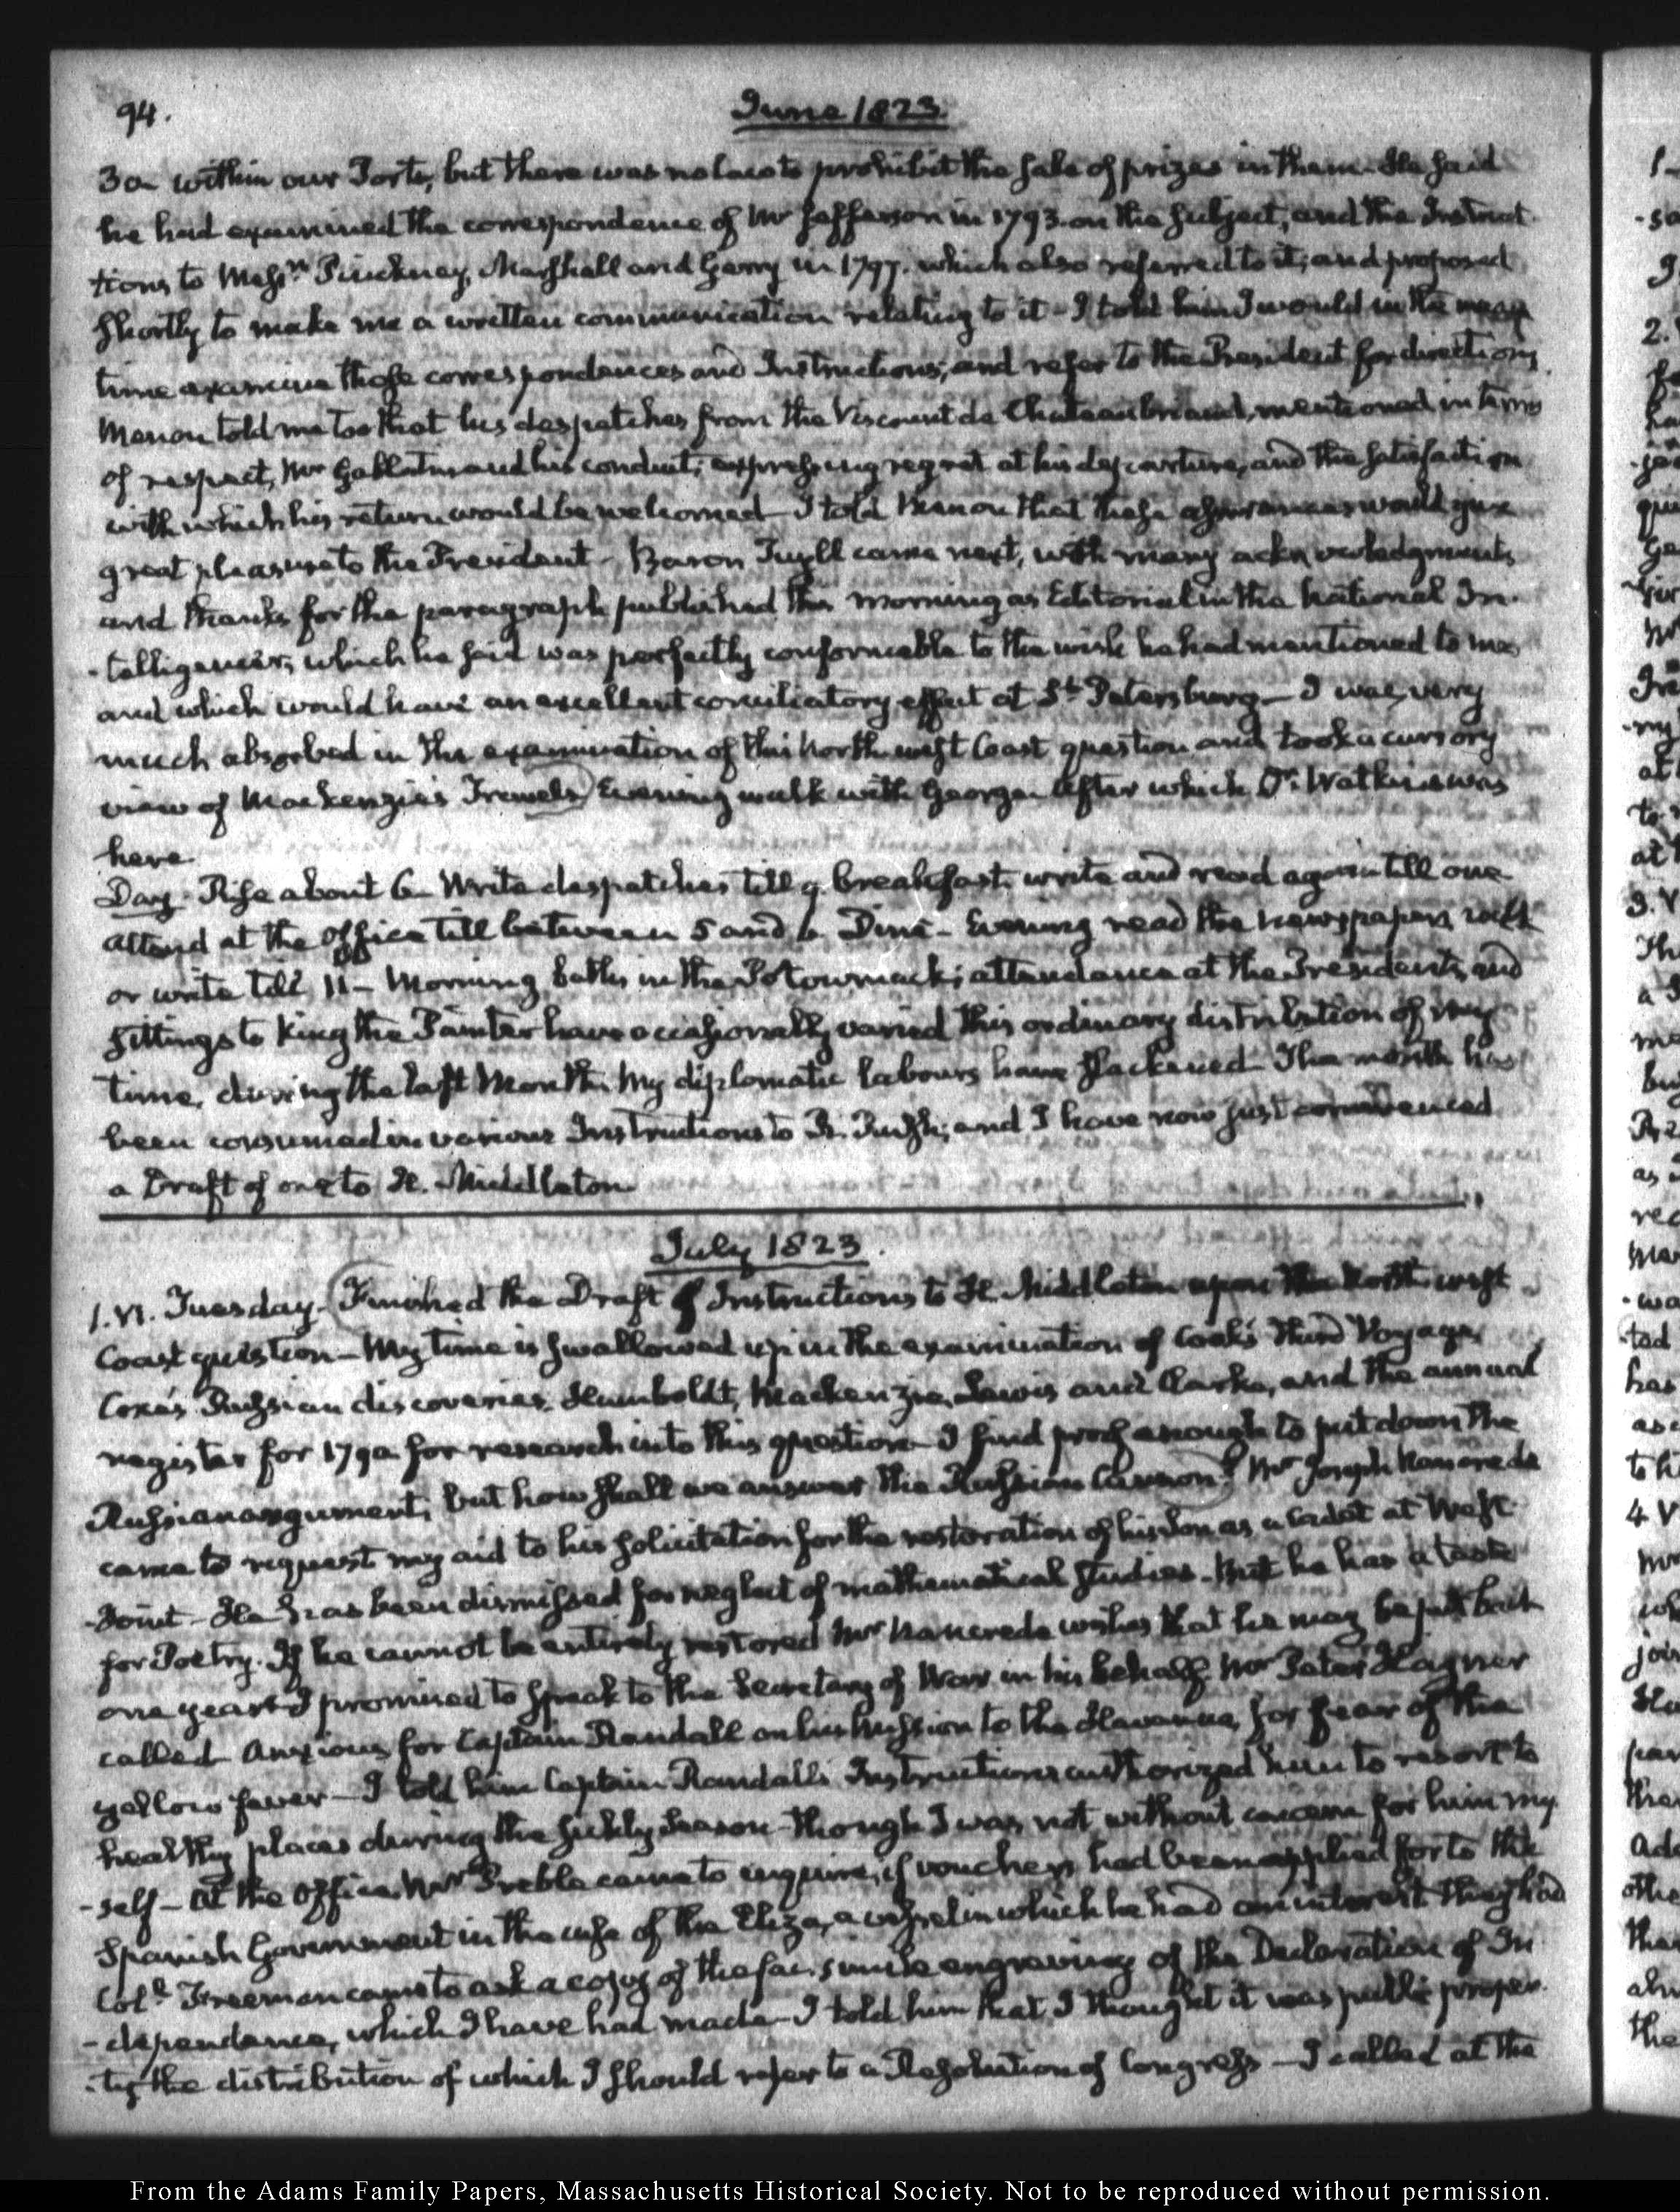 94.
June 1823
30 within our Ports, but there was no law to prohibit the sale of prizes in them. He said
he had examined the correspondence of Mr Jefferson in 1793. on the subject, and the Instruc-
tions to Messrs Pinckney, Marshall and Gerry in 1797. which also referred to it; and proposed
shortly to make me a written communication relating to it - I told him I would in the mean
time examine those correspondences and Instructions; and refer to the President for directions.
Menou told me too that his despatches from the Viscount de Chateaubriand, mentioned in terms
of respect, Mr Gallatin and his conduct; expressing regret at his departure, and the satisfaction
with which his return would be welcomed - I told Menou that these assurances would give
great pleasure to the President - Baron Tuyll came next, with many acknowledgments
and thanks for the paragraph published this morning as Editorial in the National In-
-telligencer, which he said was perfectly conformable to the wish he had mentioned to me,
and which would have an excellent conciliatory effect at St Petersburg - I was very
much absorbed in the examination of this North west Coast question and took a cursory
view of Mackenzie's Travels) Evening walk with George. After which Dr. Watkins was
here.
Day. Rise about 6. Write despatches till 9. breakfast. write and read again till one
attend at the Office till between 5 and 6. Dine - Evening read the newspapers, walk
or write till 11 - Morning baths in the Potowmack; attendance at the Presidents, and
sittings to King the Painter have occasionally varied this ordinary distribution of my
time, during the last Month. My diplomatic labours have slackened. The month has
been consumed in various Instructions to R. Rush; and I have now just commenced
a Draft of one to H. Middleton
July 1823.
1. VI. Tuesday. (Finished the Draft of Instructions to H. Middleton upon the North west
Coast question - My time is swallowed up in the examination of Cook's Third Voyage,
Coxe's Russian discoveries, Humboldt, Mackenzie, Lewis and Clarke, and the annual
register for 1790 for research into this question. I find proof enough to put down the
Russian argument; but how shall we answer the Russian Cannon?) Mr Joseph Nancrede
came to request my aid to his solicitation for the restoration of his Son as a Cadet at West
-Point - He has been dismissed for neglect of mathematical studies. But he has a taste
for Poetry. If he cannot be entirely restored Mr Nancrede wishes that he may be put back
one year. I promised to speak to the Secretary of War in his behalf. Mr Peter Hagner
called anxious for Captain Randall on his Mission to the Havanna, for fear of the
yellow fever - I told him Captain Randall's Instructions authorized him to resort to
healthy places during the sickly season - though I was not without concern for him my
-self - At the Office. Mr Preble came to enquire, if vouchers had been applied for to the
Spanish Government in the case of the Eliza, a vessel in which he had an interest. They had
Coll. Freeman came to ask a copy of the fac simile engraving of the Declaration of In
-dependance, which I have had made - I told him that I thought it was public proper-
-ty the distribution of which I should refer to a Resolution of Congress - I called at the
From the Adams Family Papers, Massachusetts Historical Society. Not to be reproduced without permission.